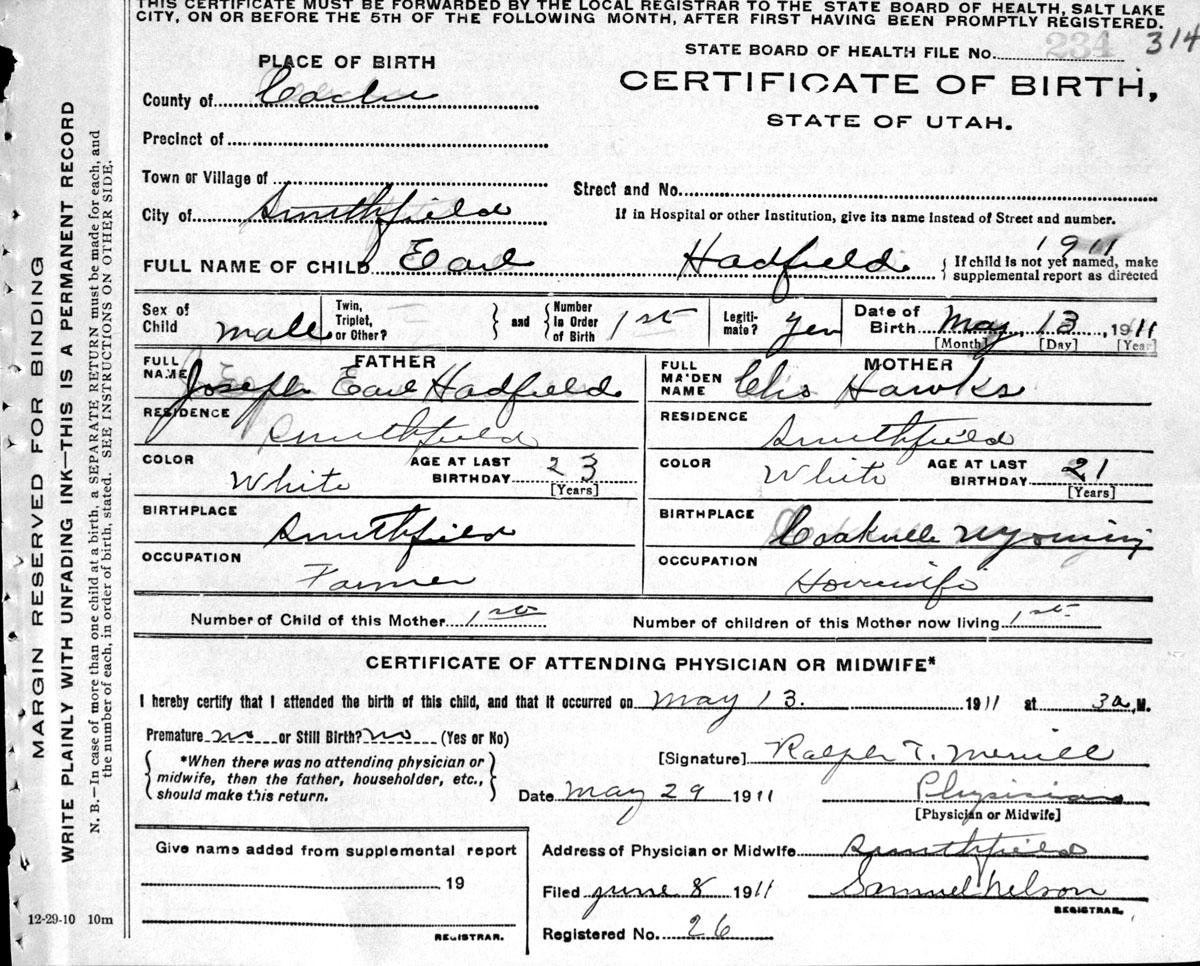 THIS CERTIFICATE MUST BE FORWARDED BY THE LOCAL REGISTRAR TO THE STATE BOARD OF HEALTH, SALT LAKE
CITY, ON OR BEFORE THE 5TH OF THE FOLLOWING MONTH, AFTER FIRST HAVING BEEN PROMPTLY REGISTERED.
STATE BOARD OF HEALTH FILE No. 234 314
PLACE OF BIRTH
CERTIFICATE OF BIRTH,
STATE OF UTAH.
County of Cache
Precinct of
Town or Village of
Street and No.
City of Smithfield
If in Hospital or other Institution, give its name instead of Street and number.
1911
FULL NAME OF CHILD Earl Hadfield { If child is not yet named, make
supplemental report as directed
Sex of Child male
Twin, Triplet, or Other? } and { Number In Order of Birth 1st
Legiti-mate? yes
Date of Birth May 13, 1911
[Month] [Day] [Year]
FATHER
FULL NAME Joseph Earl Hadfield
RESIDENCE Smithfield
COLOR White AGE AT LAST BIRTHDAY 23 [Years]
BIRTHPLACE Smithfield
OCCUPATION Farmer
MOTHER
FULL MAIDEN NAME Hawks
RESIDENCE Smithfield
COLOR White AGE AT LAST BIRTHDAY 21 [Years]
BIRTHPLACE Wyoming
OCCUPATION Housewife
Number of Child of this Mother 1st Number of children of this Mother now living 1st
CERTIFICATE OF ATTENDING PHYSICIAN OR MIDWIFE*
I hereby certify that I attended the birth of this child, and that it occurred on May 13. 1911 at 3a, M.
Premature no or Still Birth? no (Yes or No)
*When there was no attending physician or
midwife, then the father, householder, etc.,
should make this return.
[Signature] Ralph T. Merrill
Date May 29 1911 Physician
[Physician or Midwife]
Give name added from supplemental report
19
REGISTRAR.
Address of Physician or Midwife Smithfield
Filed June 8 1911 Samuel Nelson
REGISTRAR.
Registered No. 26
12-29-10 10m
MARGIN RESERVED FOR BINDING
WRITE PLAINLY WITH UNFADING INK—THIS IS A PERMANENT RECORD
N. B.—In case of more than one child at a birth, a SEPARATE RETURN must be made for each, and
the number of each, in order of birth, stated. SEE INSTRUCTIONS ON OTHER SIDE.